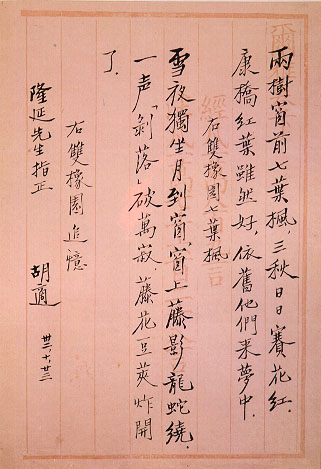 兩樹窗前七葉楓，三秋日日賽花紅．
康橋紅葉雖然好，依舊他們來夢中．
右雙橡園七葉楓
雪夜獨坐月到窗，窗上藤影龍蛇繞，
一声「剝落」破萬寂，藤花豆莢炸開
了．
右雙橡園追憶
隆延先生指正
胡適
卅三，十，廿三